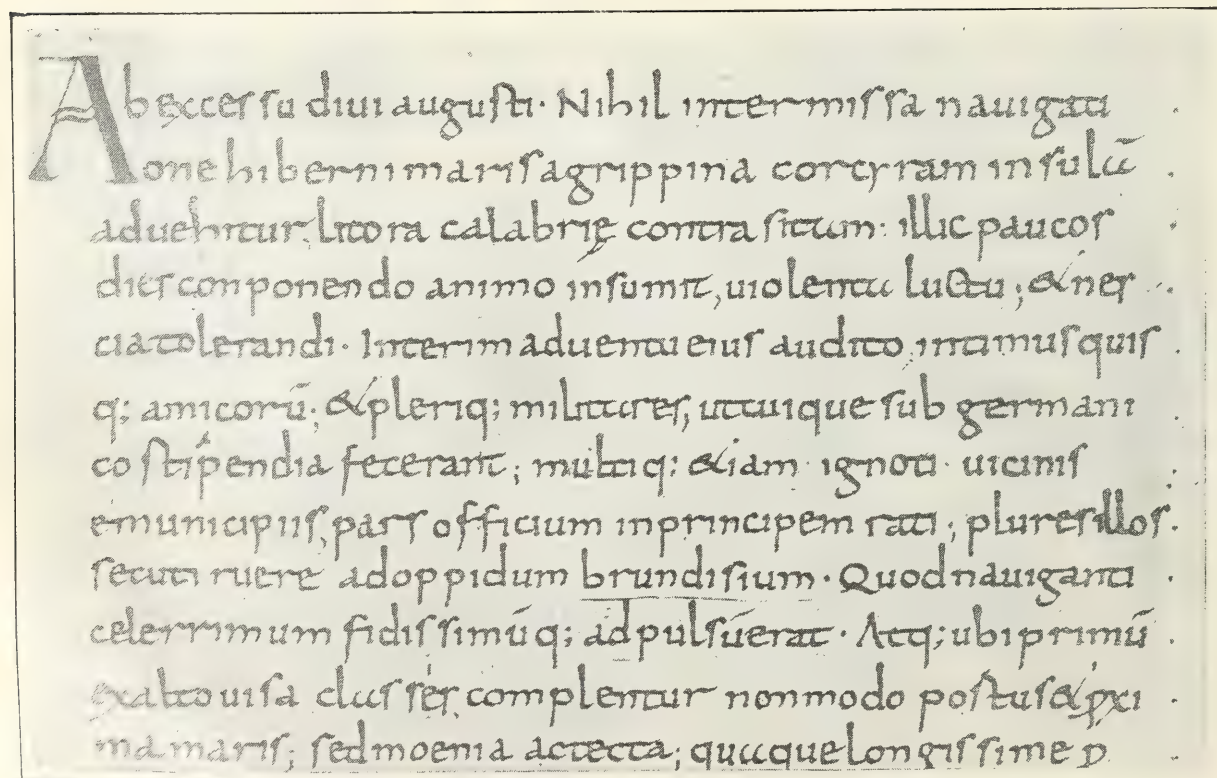 Ab excessu diui augusti · Nihil intermissa nauigati
one hiberni maris agrippina corcyram insulā
aduehitur, litora calabrię contra sitam : illic paucos
dies conponendo animo insumit, uiolenta luctu ; & nes
cia tolerandi · Interim aduentu eius audito intimus quis
q; amicorū ; & pleriq; militares, ut tuique sub germani
co stipendia fecerant ; multiq; &iam · ignoti · uicinis
e municipiis, pars officium in principem rati ; plures illos
secuti ruere ad oppidum brundisium · Quod nauiganti
celerrimum fidissimūq; adpulsū erat · Atq; ubi primū
ex alto uisa classes, complentur non modo postus & ꝓxi
ma maris ; sed moenia ac tecta ; quaque longissime ꝓ